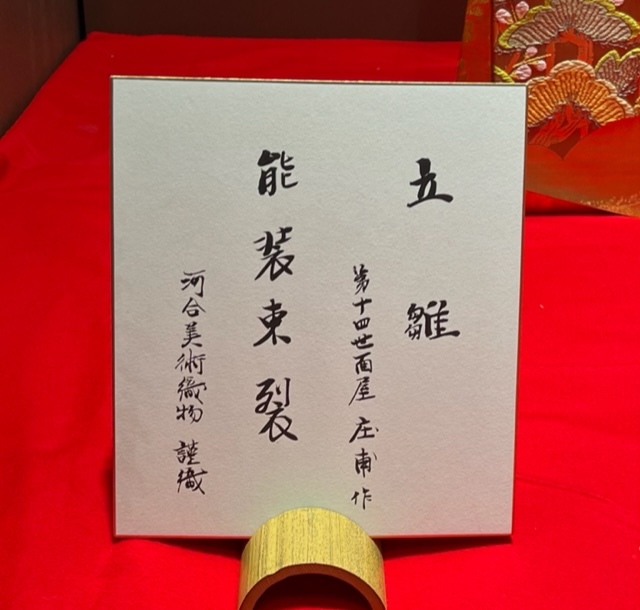 立雛
第十四世面屋 庄甫 作
能装束裂
河合美術織物 謹織